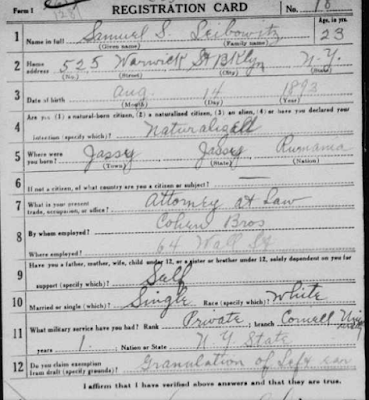 Form 1 REGISTRATION CARD No. 18
1 Name in full Samuel S. Leibowitz Age, in yrs. 23
(Given name) (Family name)
2 Home address 525 Warwick St Bklyn N.Y.
(No.) (Street) (City) (State)
3 Date of birth Aug. 14 1893
(Month) (Day) (Year)
4 Are you (1) a natural-born citizen, (2) a naturalized citizen, (3) an alien, (4) or have you declared your
intention (specify which)? Naturalized
5 Where were you born? Jassy Jassy Rumania
(Town) (State) (Nation)
6 If not a citizen, of what country are you a citizen or subject? —
7 What is your present trade, occupation, or office? Attorney at Law
8 By whom employed? Cohen Bros
Where employed? 64 Wall St
9 Have you a father, mother, wife, child under 12, or a sister or brother under 12, solely dependent on you for
support (specify which)? Self
10 Married or single (which)? Single Race (specify which)? White
11 What military service have you had? Rank Private ; branch Cornell
years 1 Nation or State N Y State
12 Do you claim exemption from draft (specify grounds)? Granulation of Left ear
I affirm that I have verified above answers and that they are true.